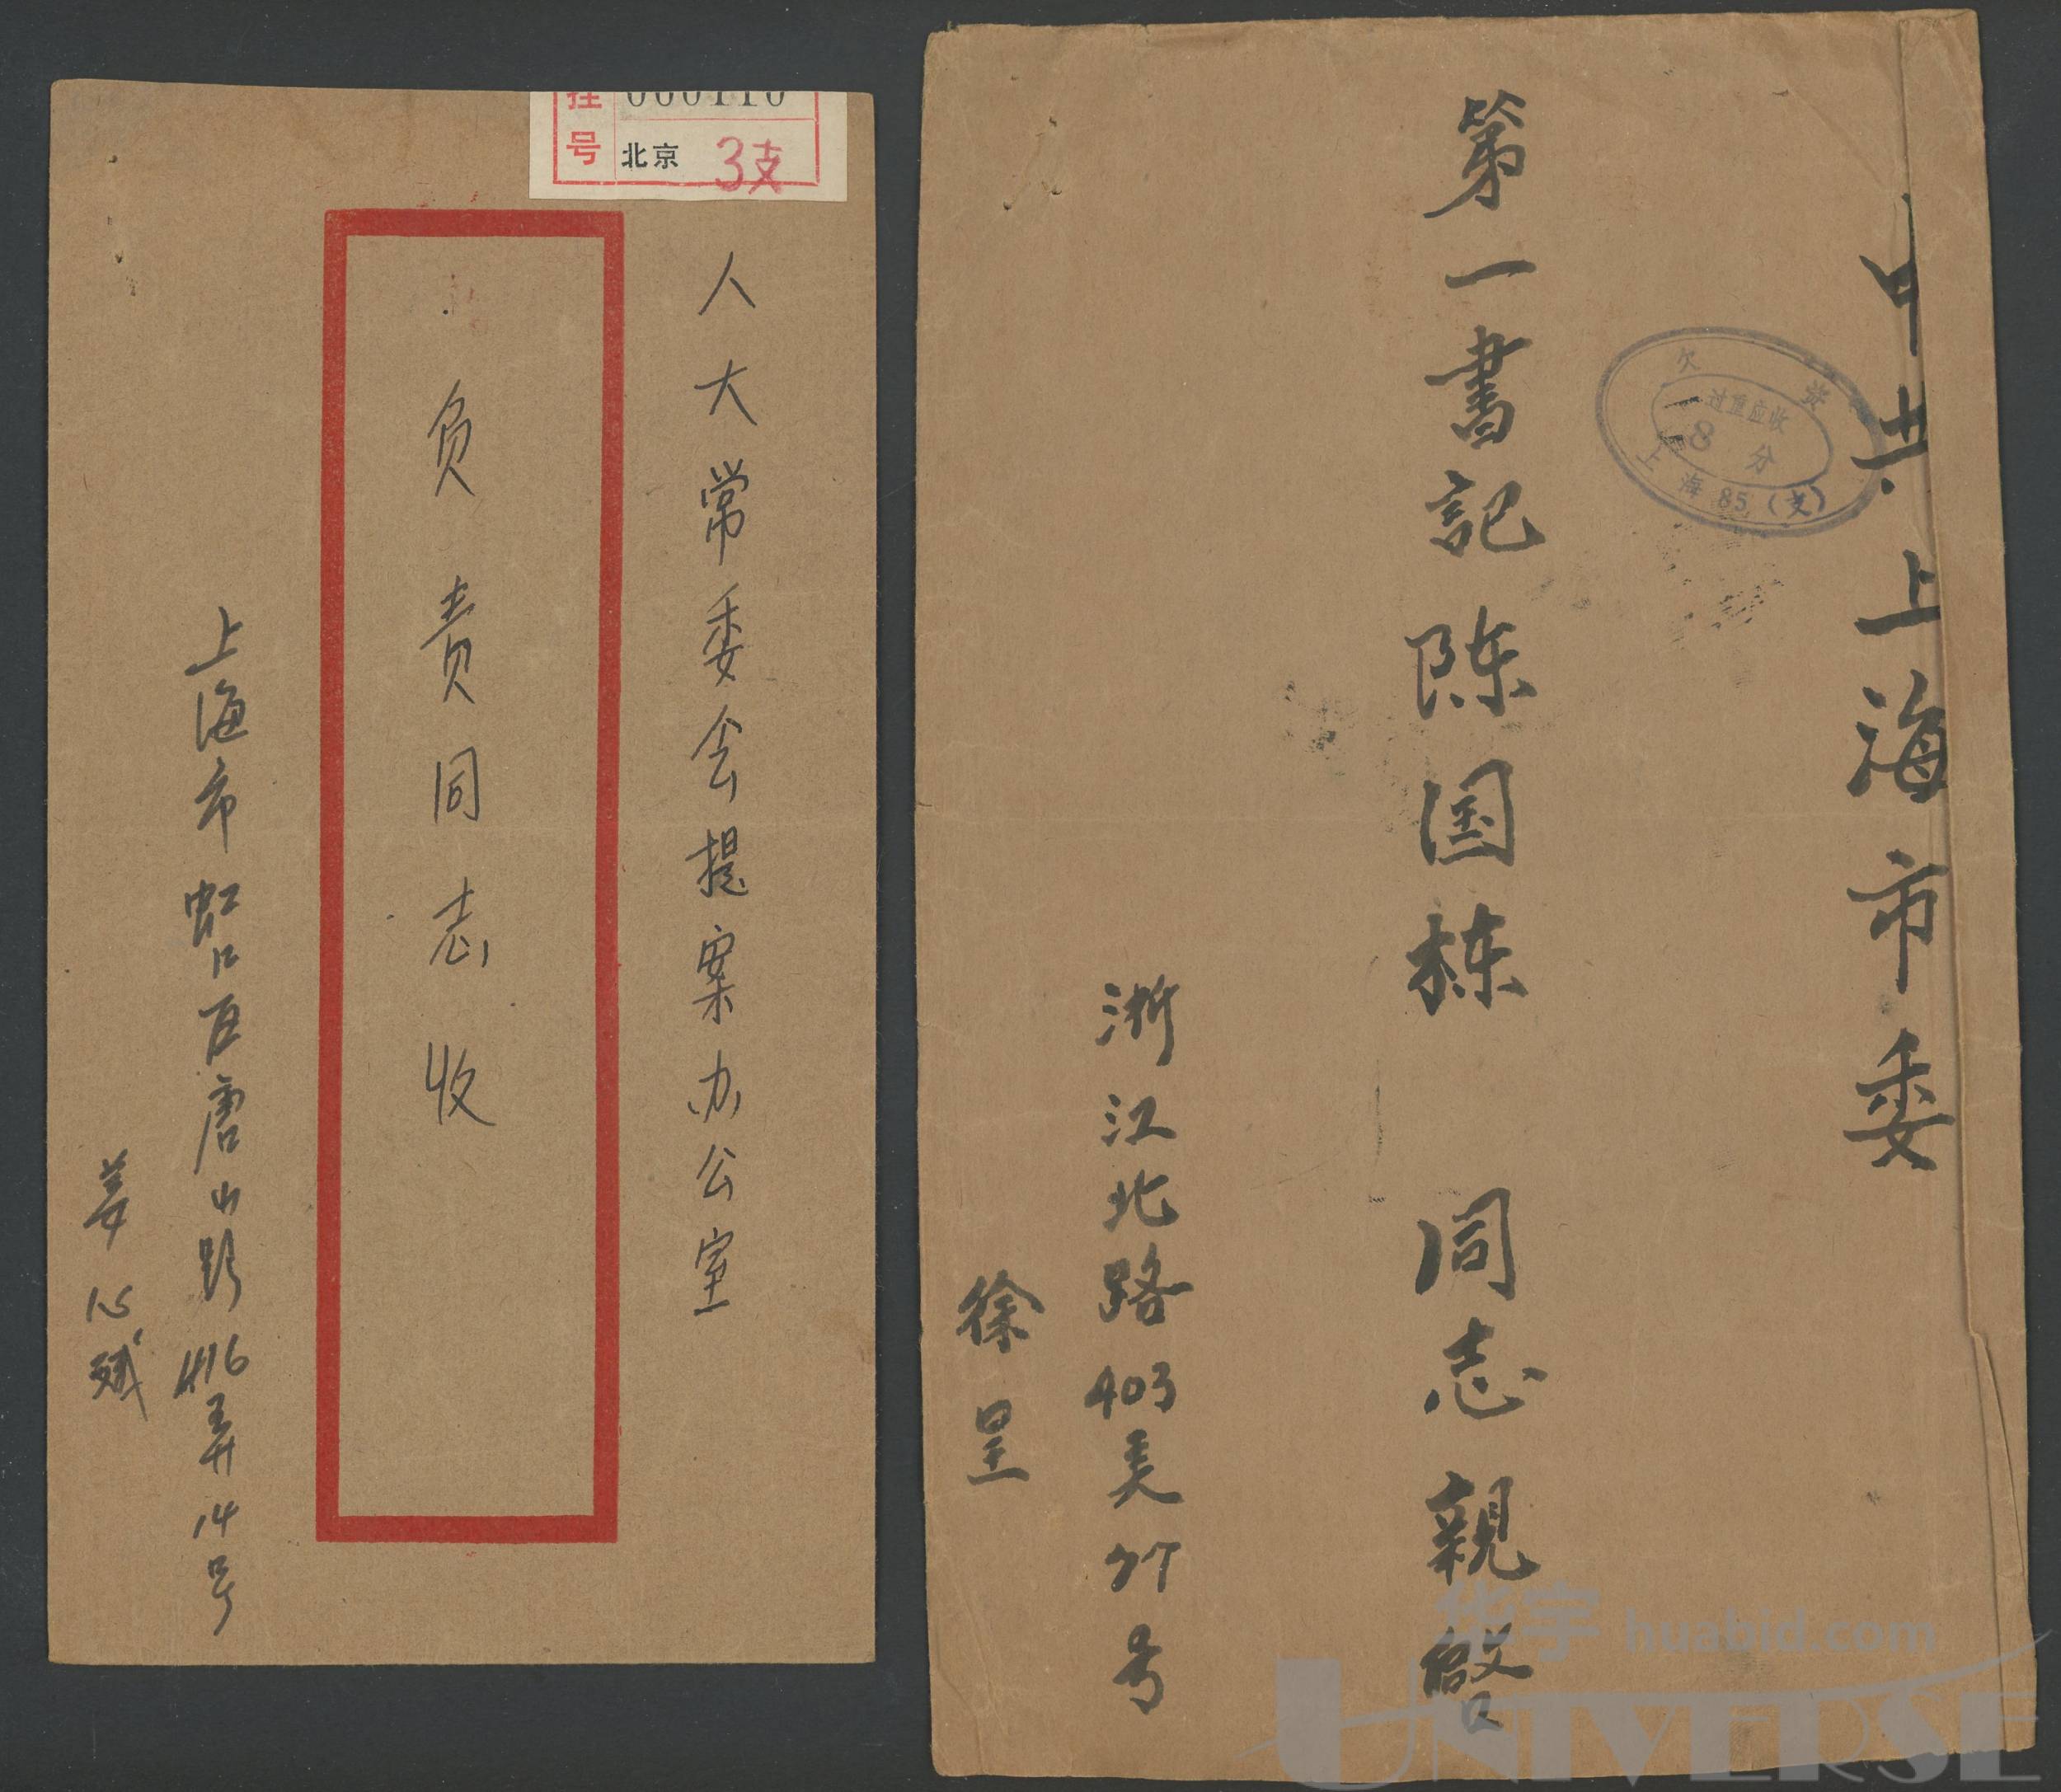 000110
挂号
北京 3支
人大常委会提案办公室
负责同志收
上海市虹口区唐山路416弄14号
姜心
中共上海市委
第一書記陈国栋 同志親啓
浙江北路403弄27号
徐呈
欠资
过重应收
8分
上海85(支)
华宇 huabid.com
UNIVERSE